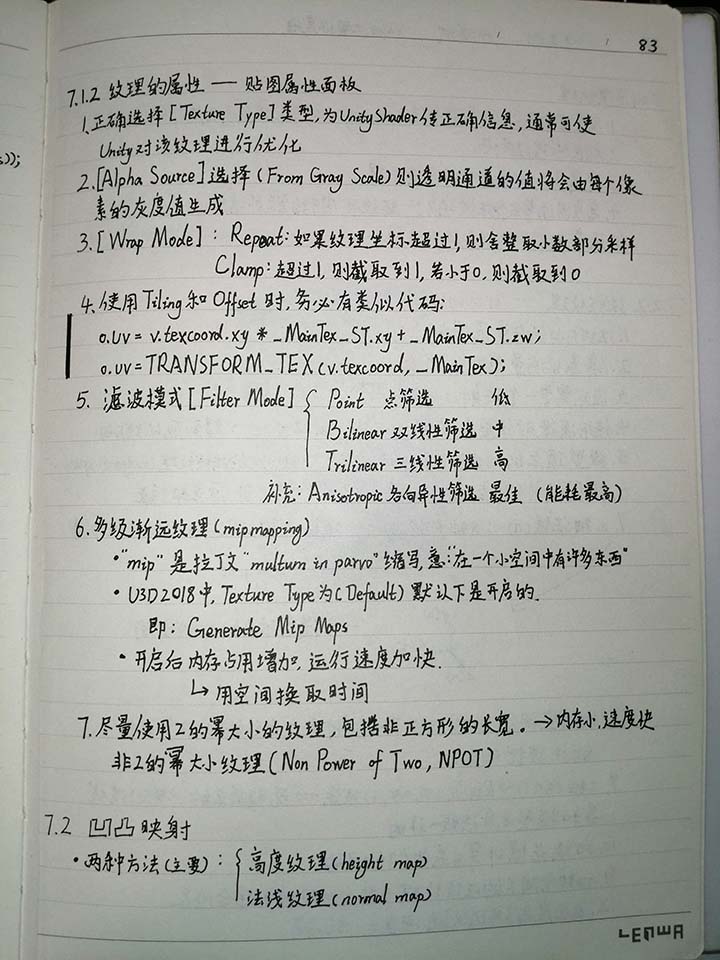 83
7.1.2 纹理的属性 — 贴图属性面板
1.正确选择[Texture Type]类型,为UnityShader传正确信息,通常可使
Unity对该纹理进行优化
s));
2.[Alpha Source]选择(From Gray Scale)则透明通道的值将会由每个像
素的灰度值生成
3.[Wrap Mode]: Repeat:如果纹理坐标超过1,则舍整取小数部分采样
Clamp:超过1,则截取到1,若小于0,则截取到0
4.使用Tiling和Offset时,务必有类似代码:
o.uv = v.texcoord.xy * _MainTex_ST.xy + _MainTex_ST.zw;
o.uv = TRANSFORM_TEX(v.texcoord, _MainTex);
5. 滤波模式[Filter Mode] { Point 点筛选 低
Bilinear 双线性筛选 中
Trilinear 三线性筛选 高
补充: Anisotropic 各向异性筛选 最佳 (能耗最高)
6.多级渐远纹理(mipmapping)
•"mip"是拉丁文"multum in parvo"缩写,意:"在一个小空间中有许多东西"
• U3D2018中, Texture Type为(Default)默认下是开启的.
即: Generate Mip Maps
• 开启后内存占用增加,运行速度加快.
↳ 用空间换取时间
7.尽量使用2的幂大小的纹理,包括非正方形的长宽。→内存小,速度快
非2的幂大小纹理(Non Power of Two, NPOT)
7.2 凹凸映射
•两种方法(主要): { 高度纹理(height map)
法线纹理(normal map)
LENWA